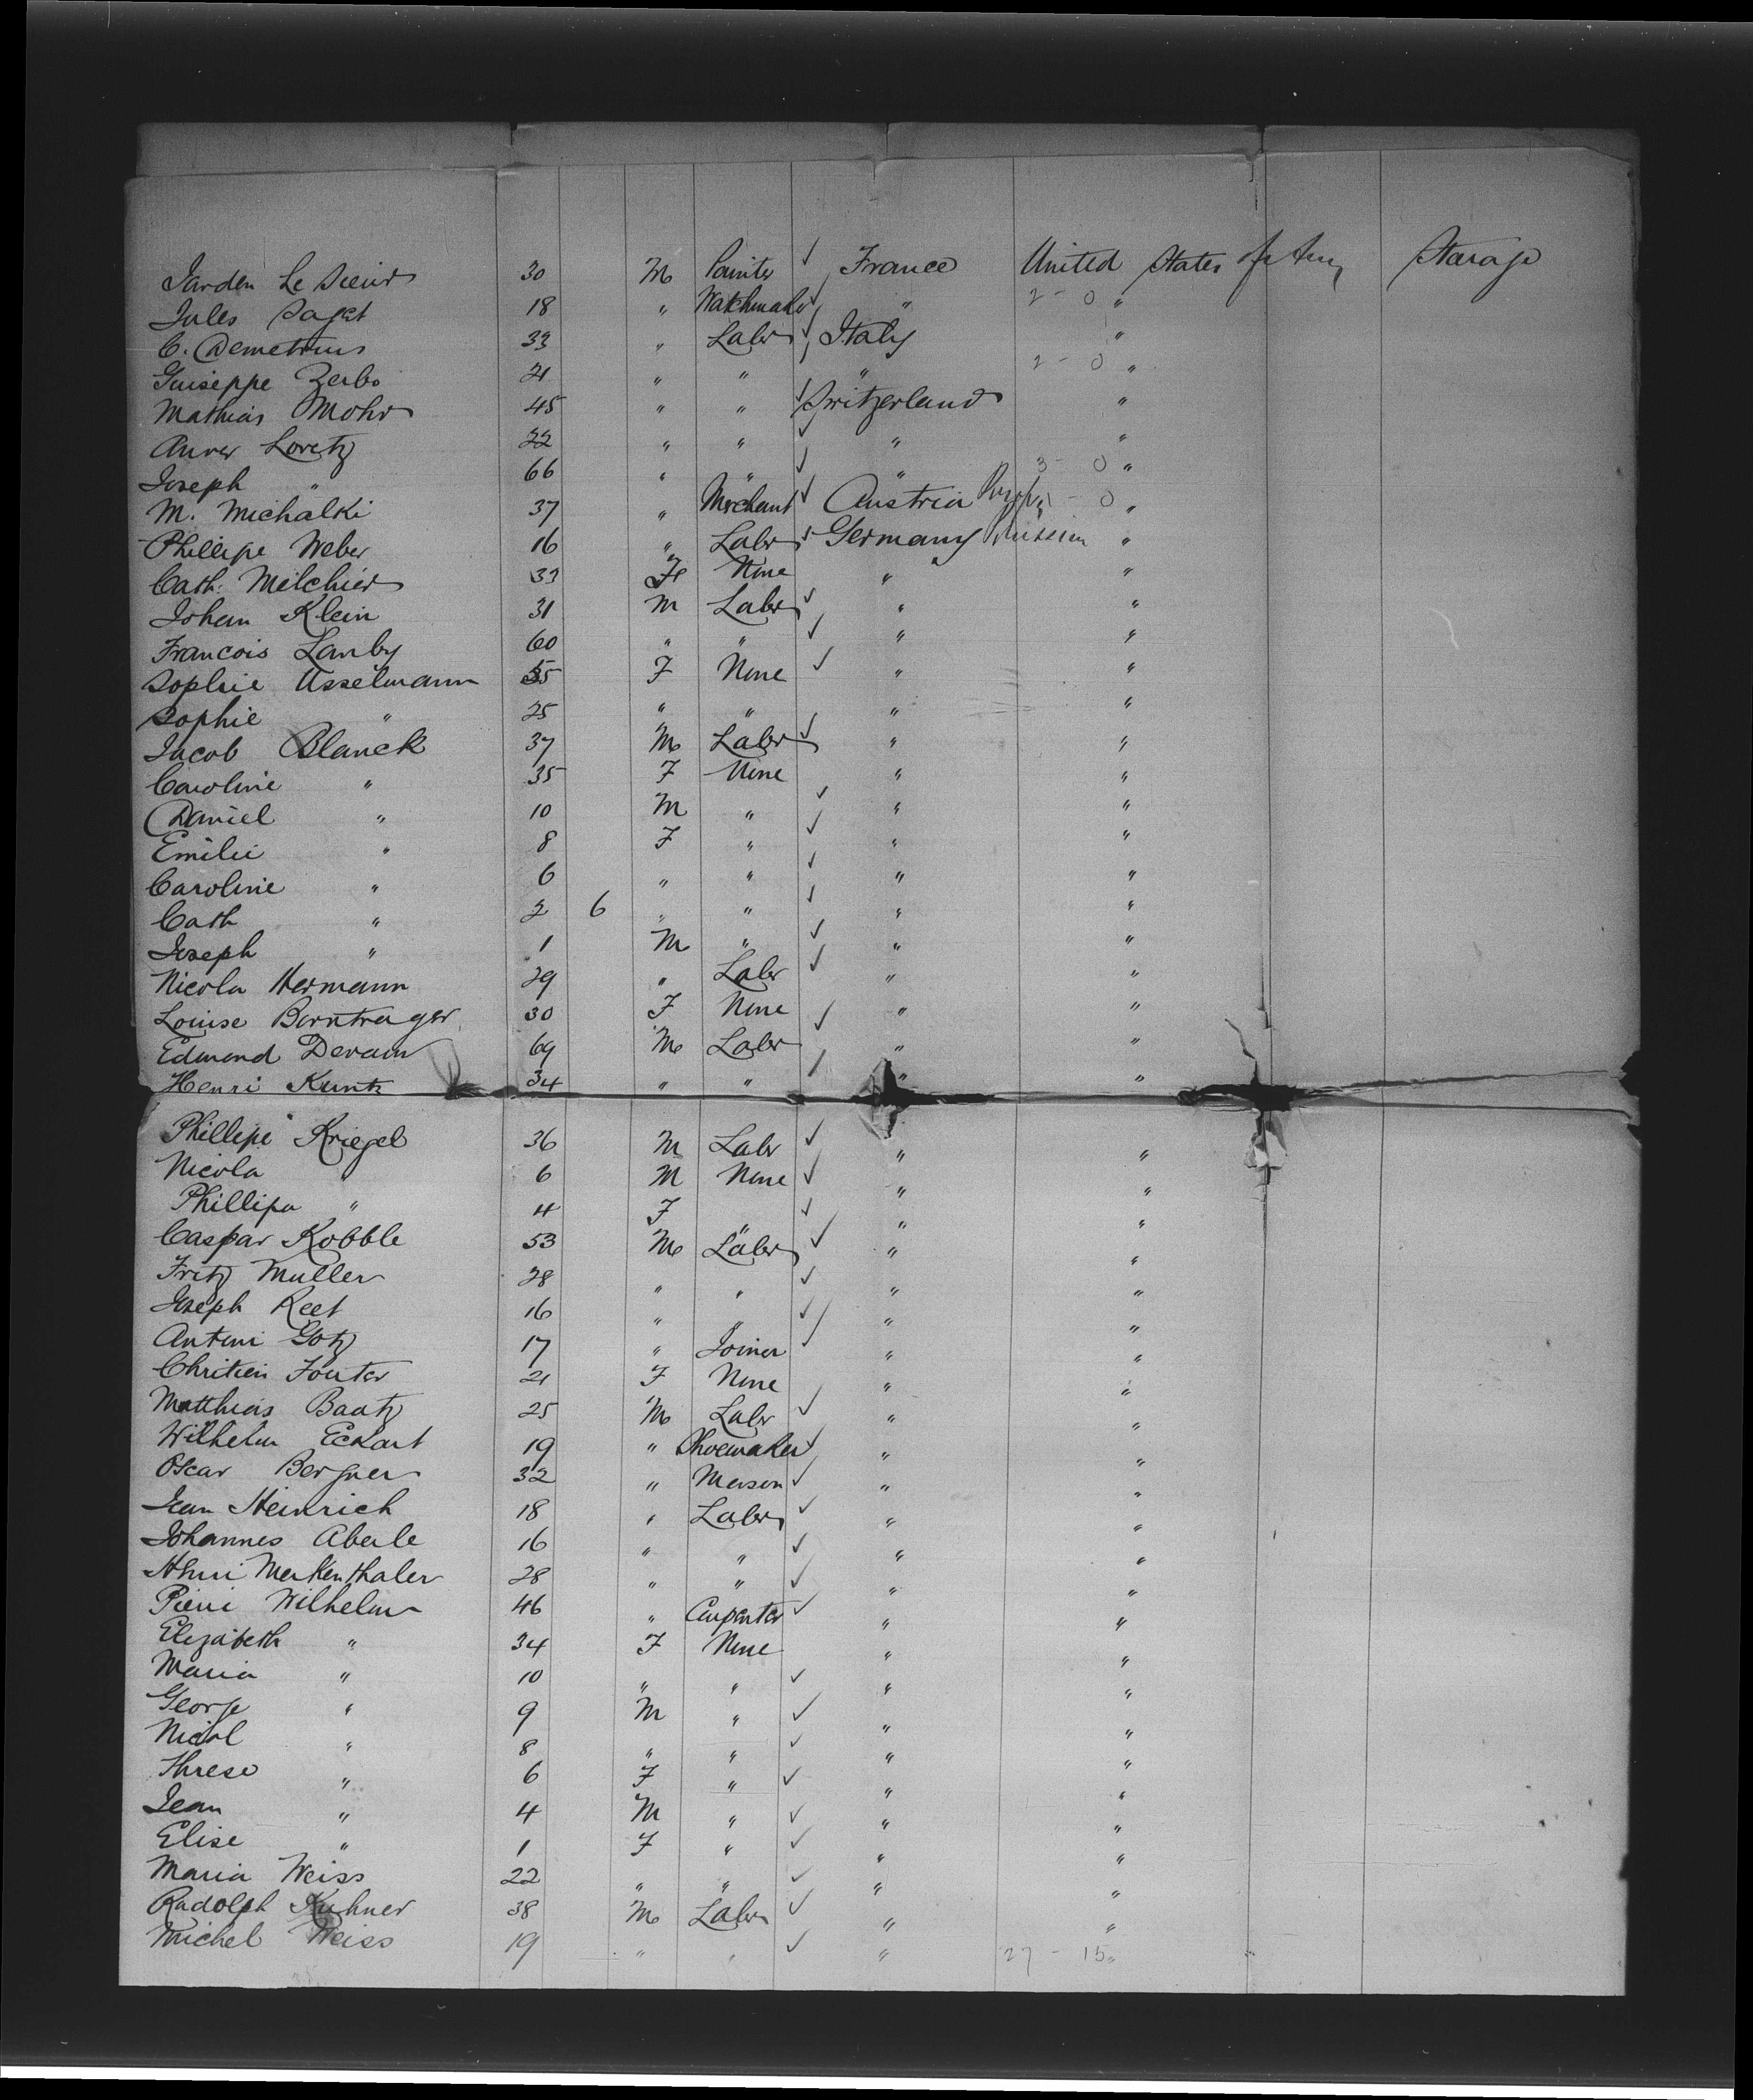 Jarden Le Sieur 30 M Painter ✓ France United States of Am, Steerage
Jules Saget 18 " Watchmaker ✓ " 2 - 0 "
C. Demetrius 33 " Labr ✓ Italy "
Guiseppe Zerbo 21 " " " 2 - 0 "
Mathias Mohr 45 " " ✓ Switzerland "
Loretz 22 " " ✓ " "
Joseph " 66 " " ✓ " 3 - 0 "
M. Michalki 37 " Merchant ✓ Austria - 0 "
Phillipe Weber 16 " Labr ✓ Germany "
Cath: Melchier 33 F None " "
Johan Klein 31 M Labr ✓ " "
Francois Lamby 60 " " ✓ " "
Sophie Asselmann 55 F None ✓ " "
Sophie " 25 " " " "
Jacob Blanck 37 M Labr ✓ " "
Caroline " 35 F None " "
Daniel " 10 M " ✓ " "
Emilie " 8 F " ✓ " "
Caroline " 6 " " ✓ " "
Cath " 2 6 " " ✓ " "
Joseph " 1 M " ✓ " "
Nicola Hermann 29 " Labr ✓ " "
Louise Borntrager 30 F None ✓ " "
Edmond Derain 69 M Labr " "
Henri Kuntz 34 " " ✓ " "
Phillipe Kriegel 36 M Labr ✓ " "
Nicola " 6 M None ✓ " "
Phillipa " 4 F " ✓ " "
Caspar Kobble 53 M Labr ✓ " "
Fritz Muller 28 " " ✓ " "
Joseph Reet 16 " " ✓ " "
Antoni Gotz 17 " Joiner ✓ " "
Chritien Fouter 21 F None " "
Matthias Baatz 25 M Labr ✓ " "
Wilhelm Eckart 19 " Shoemaker ✓ " "
Oscar Bergner 32 " Mason ✓ " "
Jean Heinrich 18 " Labr ✓ " "
Johannes Aberle 16 " " ✓ " "
Henri Merkenthaler 28 " " ✓ " "
Pierri Wilhelm 46 " Carpenter ✓ " "
Elizabeth " 34 F None " "
Maria " 10 " " ✓ " "
George " 9 M " ✓ " "
Nicol " 8 " " ✓ " "
Threse " 6 F " ✓ " "
Jean " 4 M " ✓ " "
Elise " 1 F " ✓ " "
Maria Weiss 22 " " ✓ " "
Radolph Kuhner 38 M Labr ✓ " "
Michel Weiss 19 " " ✓ " 27 - 15 "